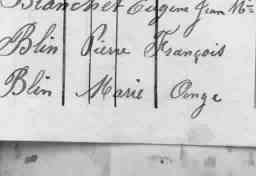 Blanchet Eugène Jean Mie
Blin Pierre François
Blin Marie Ange